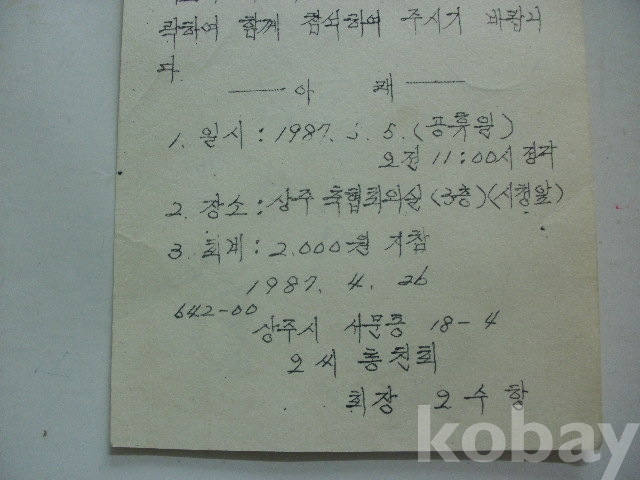 락하여 함께 참석하여 주시기 바랍니
다
아 래
1. 일시 : 1987. 5. 5. (공휴일)
오전 11:00시 정각
2. 장소 : 상주 축협회의실 (3층)(시청앞)
3. 회계 : 2.000원 지참
1987. 4. 26
642-00
상주시 서문동 18-4
오씨 종친회
회장 오수항
kobay